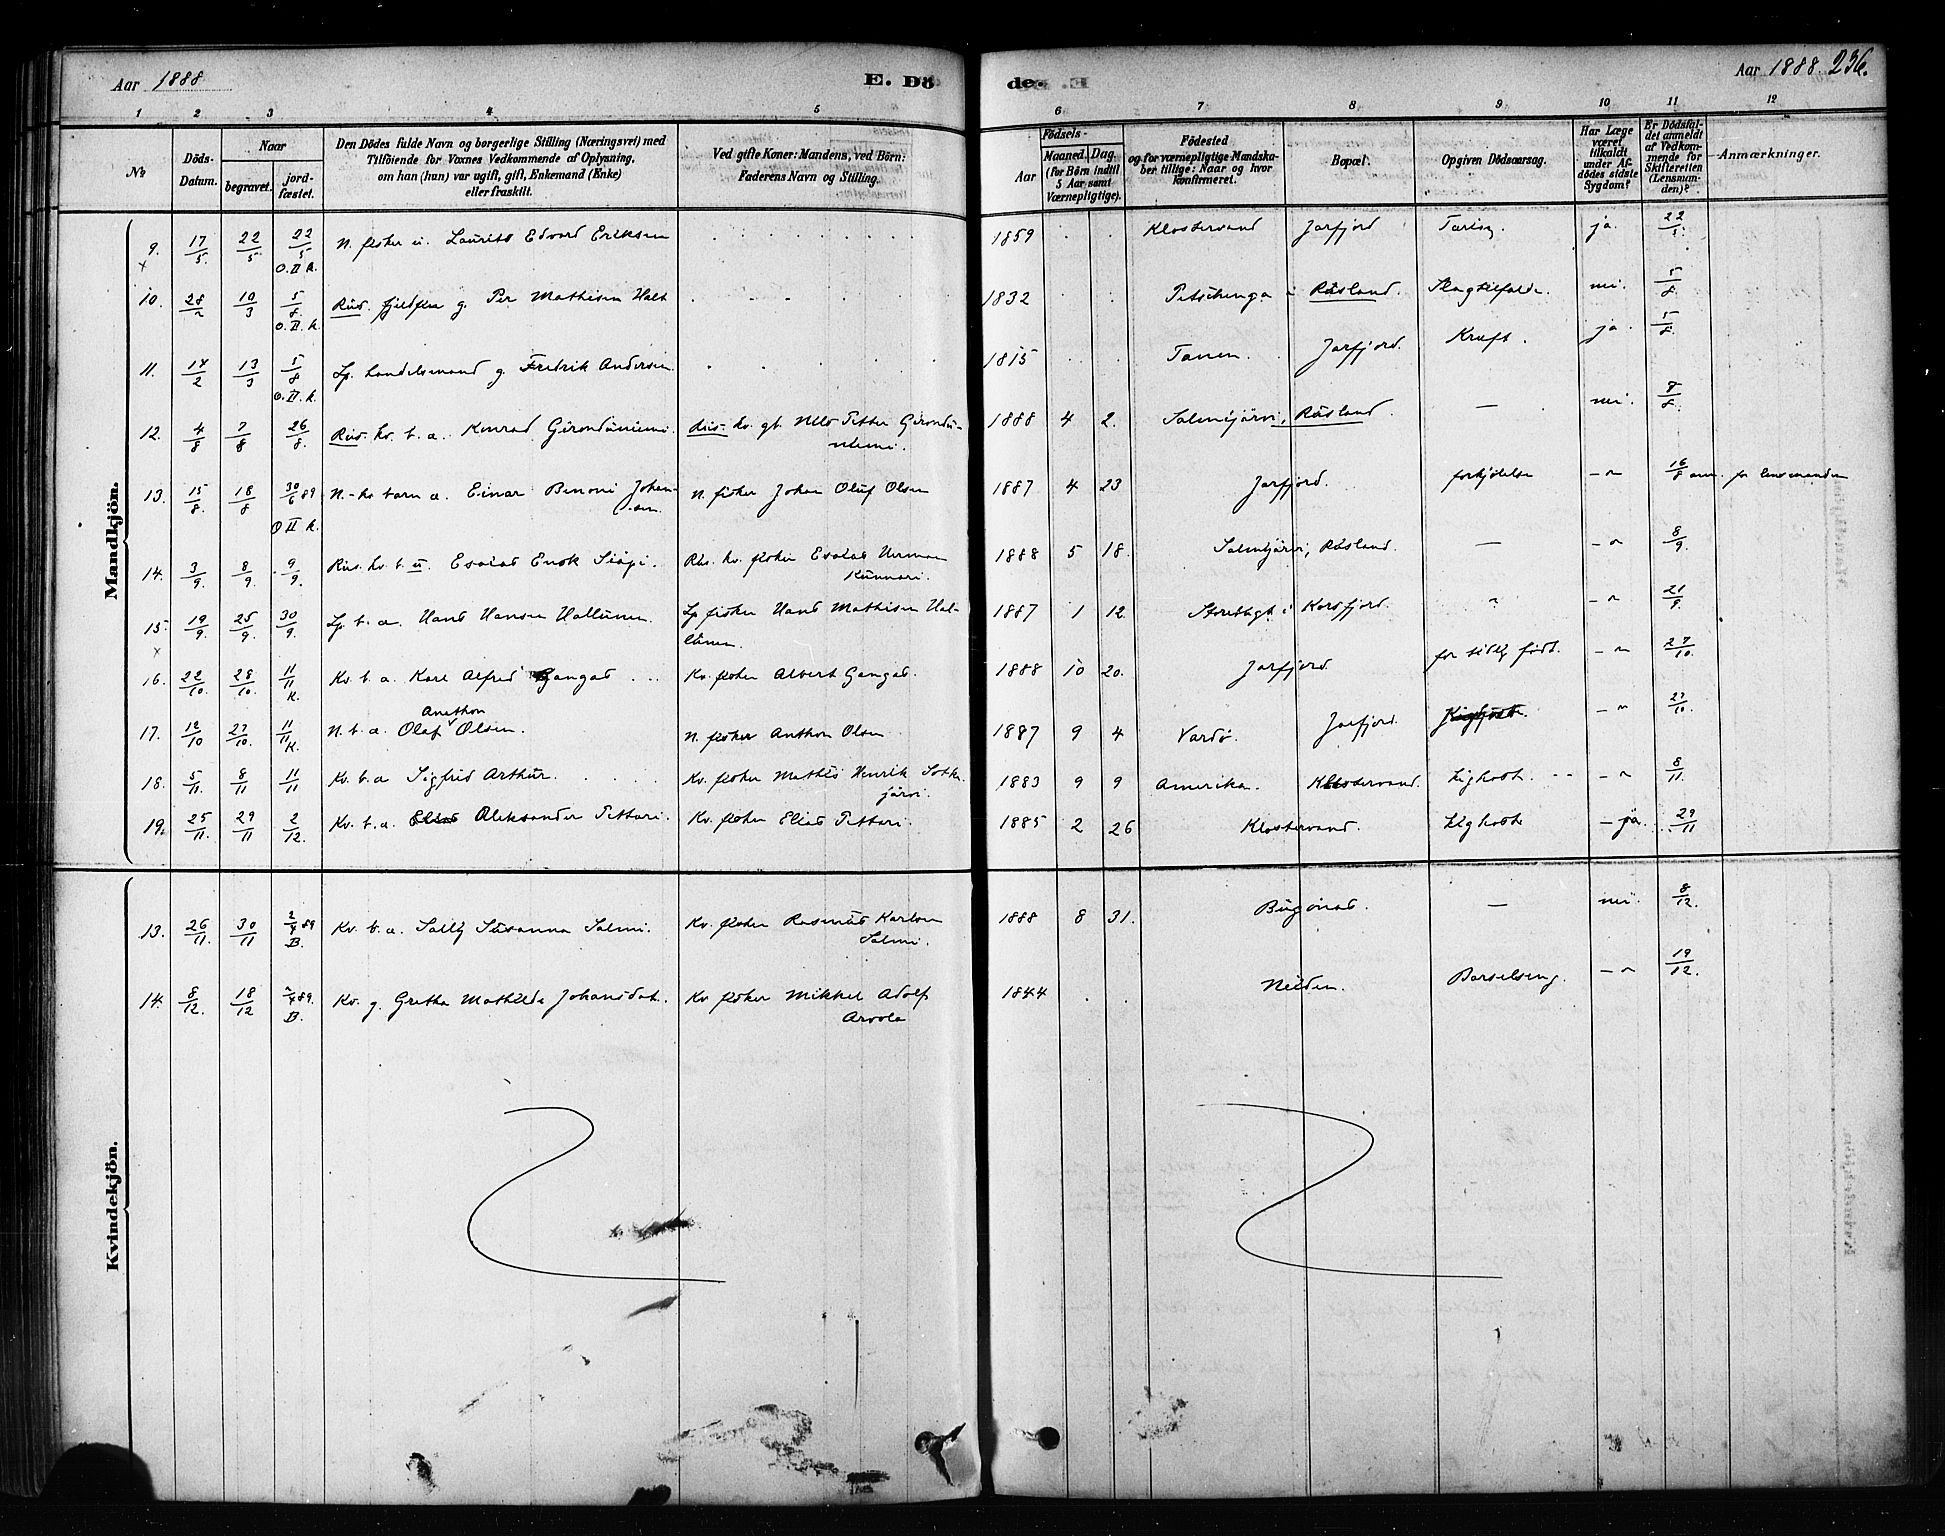 Aar 1888 E. Dö de. Aar 1888. 236.
1 2 3 4 5 6 7 8 9 10 11 12
No Döds-Datum. Naar begravet. jordfæstet. Den Dödes fulde Navn og borgerlige Stilling (Næringsvei) med Tilföiende for Voxnes Vedkommende af Oplysning, om han (hun) var ugift, gift, Enkemand (Enke) eller fraskilt. Ved gifte Koner: Mandens, ved Börn: Faderens Navn og Stilling. Födsels- Aar Maaned. Dag. (for Börn indtil 5 Aar samt Værnepligtige). Födested og for værnepligtige Mandskaber tillige: Naar og hvor Konfirmeret. Bopæl. Opgiven Dödsaarsag. Har Læge været tilkaldt under Afdödes sidste Sygdom? Er Dödsfaldet anmeldt af Vedkommende for Skifteretten (Lensmanden)? Anmærkninger.
Mandkjön.
9. 17/5. 22/5. 22/5 O. II K. N. fisker u. Laurits Edvard Eriksen 1859 Klostervand Jarfjord ja. 22/5.
10. 28/2 10/3 5/8. O. II. K. Rus. g. Per Mathisen Halt 1832 Petschenga i Rüsland. Slagtilfælde. nei. 5/8.
11. 14/2 13/3 5/8 O. II. K. Lp. Landelsmand g. Fredrik Andersen 1815 Tanen. Jarfjord. Kræft. ja. 5/8.
12. 4/8 7/8 26/8. Rus. kv. b. a. Konrad Girondüniemi. Rus. kv. gt. Nils Petter Girondüniemi. 1888 4 2. Salmijärvi, Rüsland. — nei. 8/8.
13. 15/8. 18/8 30/6 89 O II K. N.-kv barn a. Einar Benoni Johansen N. fisker Johan Oluf Olsen 1887 4 23 Jarfjord. forkjölelse — " 16/8 anm. for lensmanden
14. 3/9. 8/9. 9/9. Rus. kv. b. u. Esaias Enok Rus. kv. fisker Esaias Herman Kunnari. 1888 5 18. Salmijärvi, Rüsland. — — " 8/9.
15. 19/9. 25/9. 30/9. Lp b. a. Hans Hansen Hallunen. Lp fisker Hans Mathisen Hallünen. 1887 1 12. i Korsfjord. " — " 21/9.
16. 22/10. 28/10. 11/11 K. Kv. b. a. Karl Alfred Gangas Kv. fisker Albert Gangas. 1888 10 20. Jarfjord for tidlig födt. — " 27/10.
17. 12/10 27/10. 11/11 K. N. b. a. Olaf Anethon Olsen. N. fisker Anthon Olsen 1887 9 4 Vardö. Jarfjord. — " 27/10.
18. 5/11. 8/11 11/11 Kv. b. a Sigfrid Arthur. Kv. fisker Mathis Henrik Sotkajärvi. 1883 9 9 Amerika. Klostervand. Kighoste. — " 8/11.
19. 25/11. 29/11 2/12. Kv. b. a. Elias Aleksander Pettari. Kv. fisker Elias Pettari. 1885 2 26 Klostervand. Kighoste — ja. 29/11
Kvindekjön.
13. 26/11. 30/11 2/4 89 B. Kv. b. a. Sally Süsanna Salmi. Kv. fisker Rasmus Karlsen Salmi. 1888 8 31. Bügönæs. — nei. 8/12.
14. 8/12. 18/12 2/4 89. B. Kv. g. Gretha Mathilde Johansdat. Kv. fisker Mikkel Adolf Arvola 1844 Neiden. Barselseng. — " 19/12.